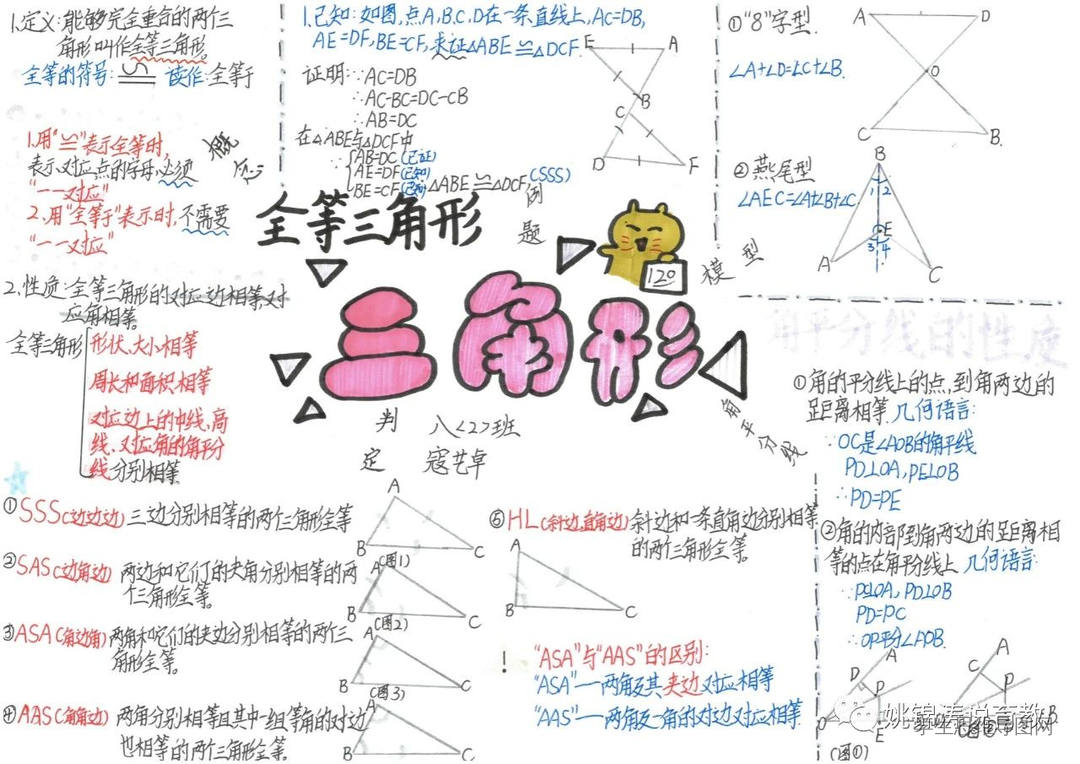 1.定义:能够完全重合的两个三
角形叫作全等三角形。
全等的符号:≌ 读作:全等于
1.用“≌”表示全等时,
表示对应点的字母必须
“一一对应”
2.用“全等于”表示时,不需要
“一一对应”
概念
2.性质:全等三角形的对应边相等,对
应角相等。
全等三角形
形状、大小相等
周长和面积相等
对应边上的中线、高
线、对应角的角平分
线分别相等
1.已知:如图,点A,B,C,D在一条直线上,AC=DB,
AE=DF,BE=CF,求证△ABE≌△DCF.
证明:∵AC=DB
∴AC-BC=DC-CB
∴AB=DC
在△ABE与△DCF中
∵AB=DC(已证)
AE=DF(已知)
BE=CF(已知)
∴△ABE≌△DCF(SSS)
E A
B
C
D F
例题
①“8”字型
∠A+∠D=∠C+∠B.
A D
O
C B
②燕尾型
∠AEC=∠A+∠B+∠C.
B
1 2
E
3 4
A C
模型
全等三角形
120
三角形
判定
八<2>班
寇艺卓
角平分线
①SSS(边边边)三边分别相等的两个三角形全等
②SAS(边角边) 两边和它们的夹角分别相等的两
个三角形全等。
③ASA(角边角)两角和它们的夹边分别相等的两个三
角形全等。
④AAS(角角边) 两角分别相等且其中一组等角的对边
也相等的两个三角形全等。
A
B C
(图1)
A
B C
(图2)
A
B C
(图3)
A
B C
⑤HL(斜边,直角边)斜边和一条直角边分别相等
的两个三角形全等。
A
B C
!
“ASA”与“AAS”的区别:
“ASA”—两角及其夹边对应相等
“AAS”—两角及一角的对边对应相等
角平分线的性质
①角的平分线上的点,到角两边的
距离相等 几何语言:
∵OC是∠AOB的角平线
PD⊥OA,PE⊥OB
∴PD=PE
②角的内部到角两边的距离相
等的点在角平分线上 几何语言:
∵PC⊥OA,PD⊥OB
PD=PC
∴OP平分∠AOB
A
D P
E
(图①)
A
C P
B
姚锦涛说育教